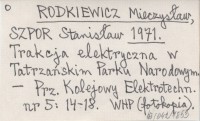 RODKIEWICZ Mieczysław,
SZPOR Stanisław 1971.
Trakcja elektryczna w
Tatrzańskim Parku Narodowym
- Prz. Kolejowy Elektrotechn.
nr 5: 14-18. WHP (fotokopia).